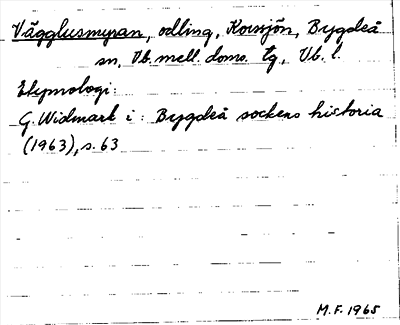 Vägglusmyran, odling, Korssjön, Bygdeå
sn, Vb. mell. doms. tg, Vb. l.
Etymologi:
G. Widmark i: Bygdeå sockens historia
(1963), s. 63
M.F. 1965